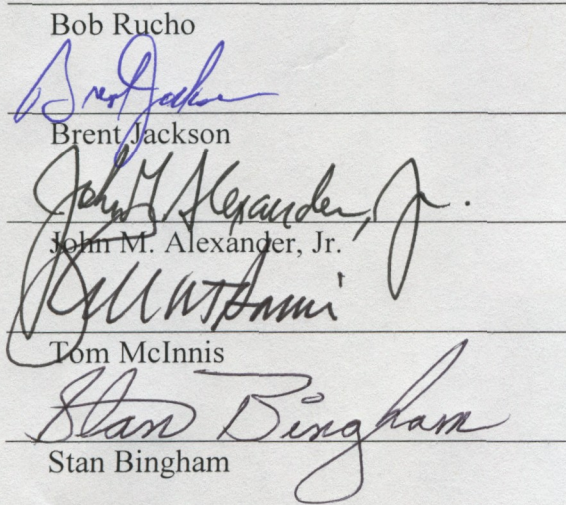 Bob Rucho
Brent Jackson
Brent Jackson
John M. Alexander, Jr.
John M. Alexander, Jr.
Tom McInnis
Stan Bingham
Stan Bingham